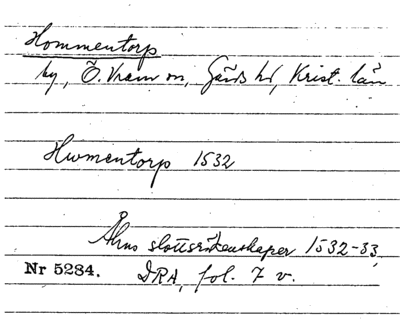 Hommentorp
by, Ö. Vram sn, Gärds hd, Krist. län
Hwmentorp 1532
Åhus slottsräkenskaper 1532-33,
Nr 5284. DRA, fol. 7 v.